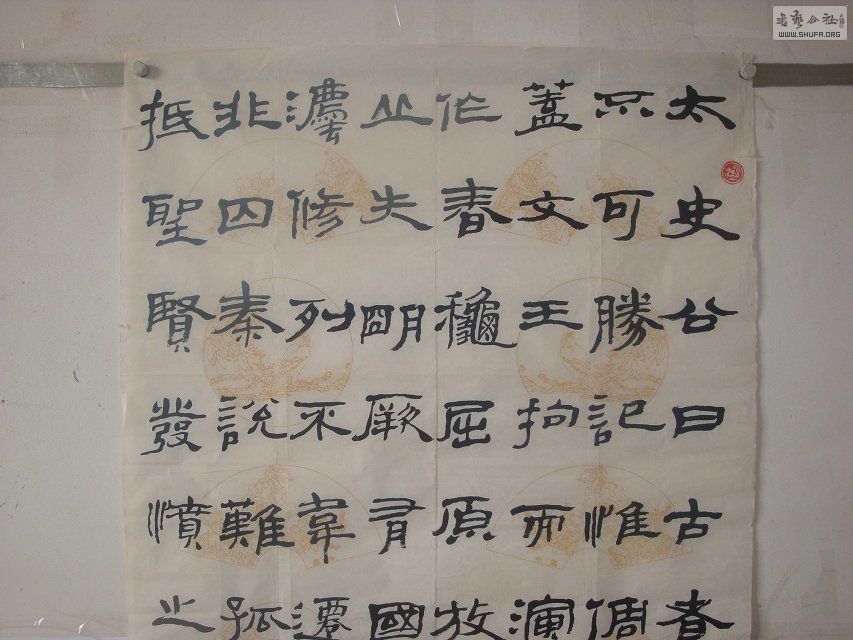 太史公曰古者
不可勝記惟倜
蓋文王拘而演
作春龝屈原放
丘失朙厥有國
灋修列不韋遷
非囚秦說難孤
抵聖賢發憤之
書藝公社
WWW.SHUFA.ORG